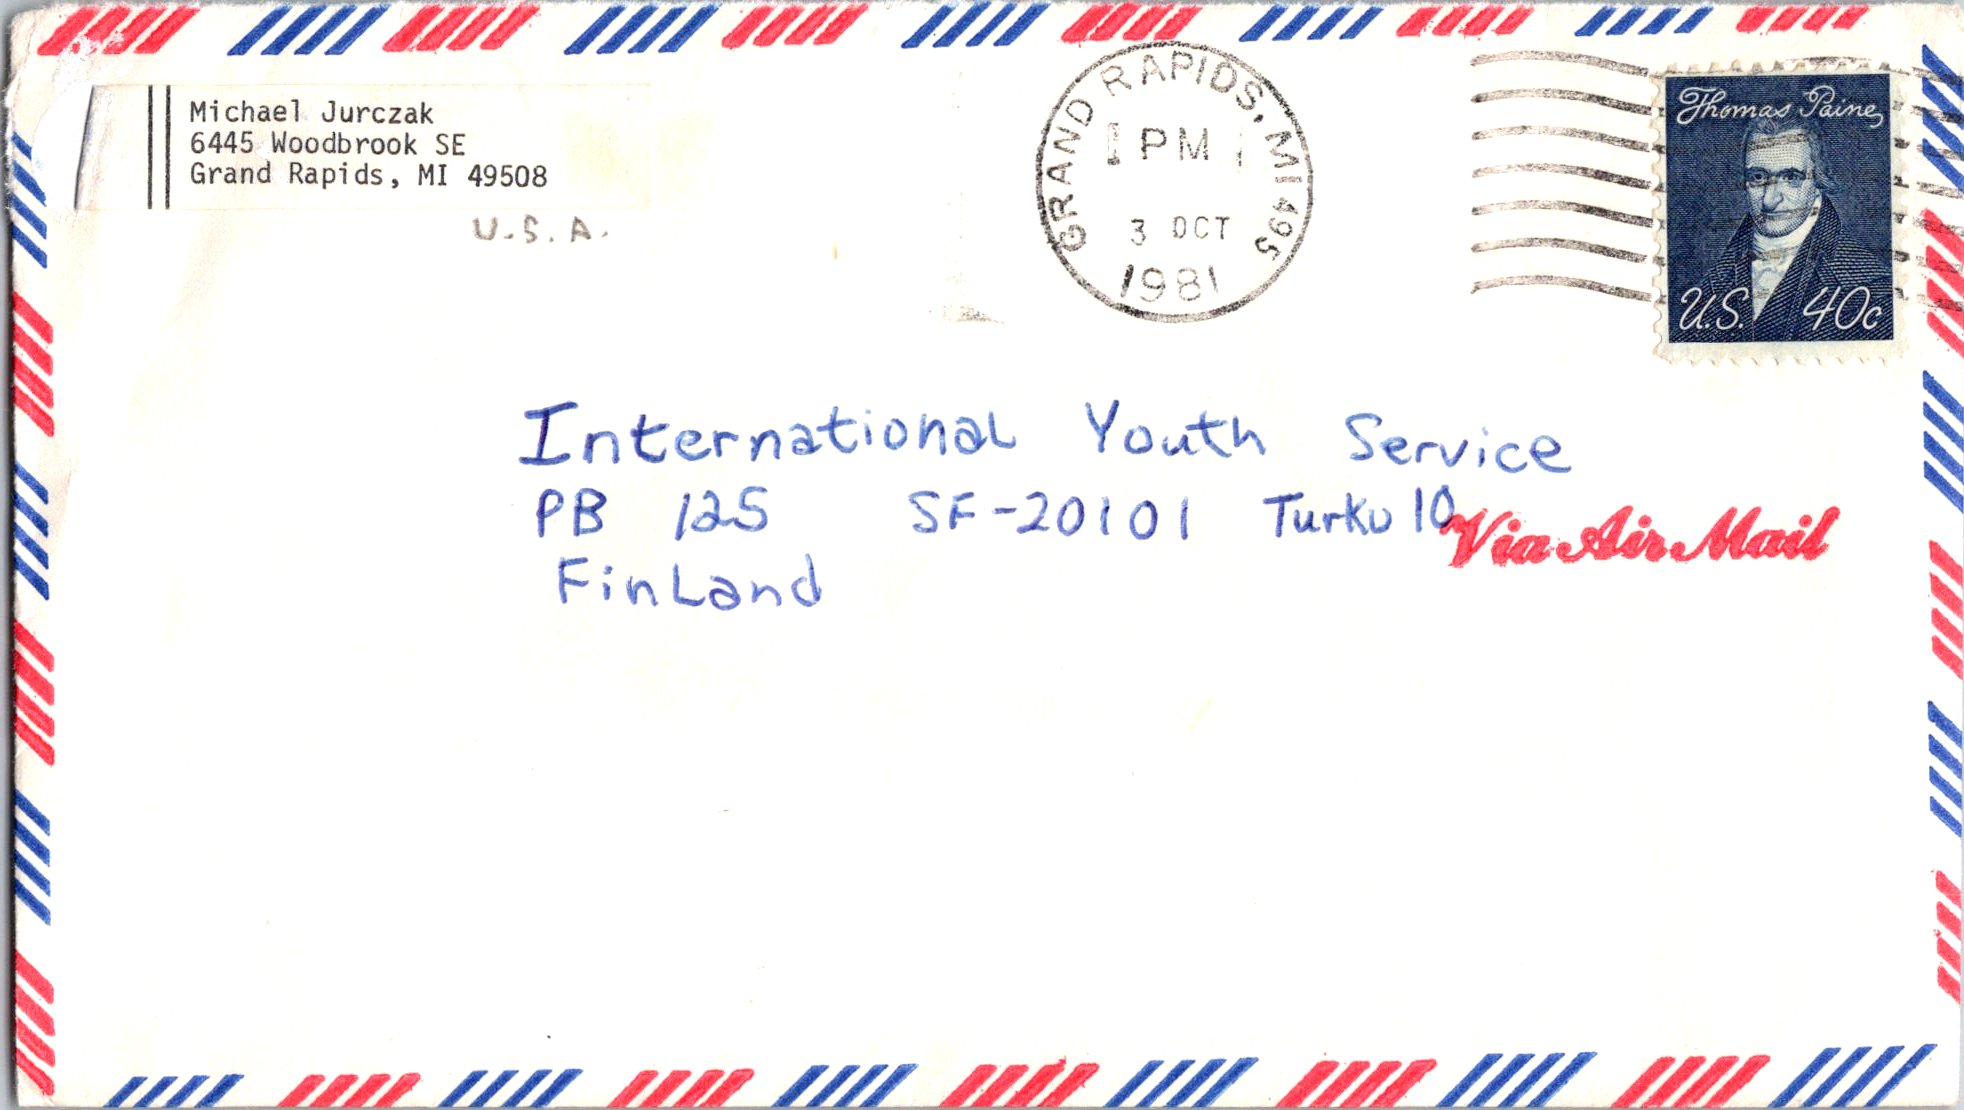 Michael Jurczak
6445 Woodbrook SE
Grand Rapids, MI 49508
U.S.A.
GRAND RAPIDS, MI 495
PM
3 OCT
1981
Thomas Paine
U.S. 40c
International Youth Service
PB 125 SF-20101 Turku 10
Finland
Via Air Mail